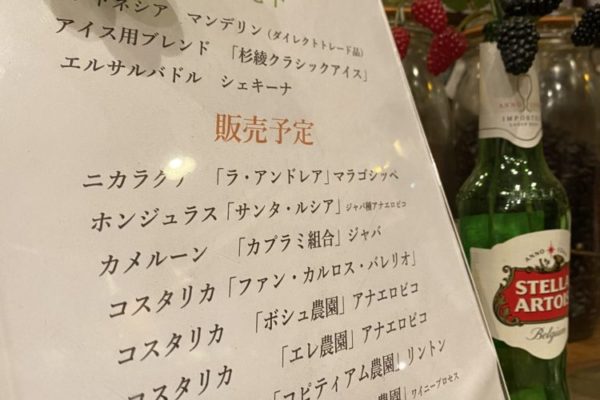 ドネシア　マンデリン（ダイレクトトレード品）
アイス用ブレンド　「杉綾クラシックアイス」
エルサルバドル　シェキーナ
販売予定
ニカラグア　「ラ・アンドレア」マラゴシッペ
ホンジュラス「サンタ・ルシア」ジャバ種アナエロビコ
カメルーン　「カプラミ組合」ジャバ
コスタリカ「ファン・カルロス・バレリオ」
コスタリカ　「ボシュ農園」アナエロビコ
コスタリカ　「エレ農園」アナエロビコ
「コピティアム農園」リントン
農園」ワイニープロセス
ANNO
IMPORTED
ANNO
STELLA
ARTOIS
Belgium